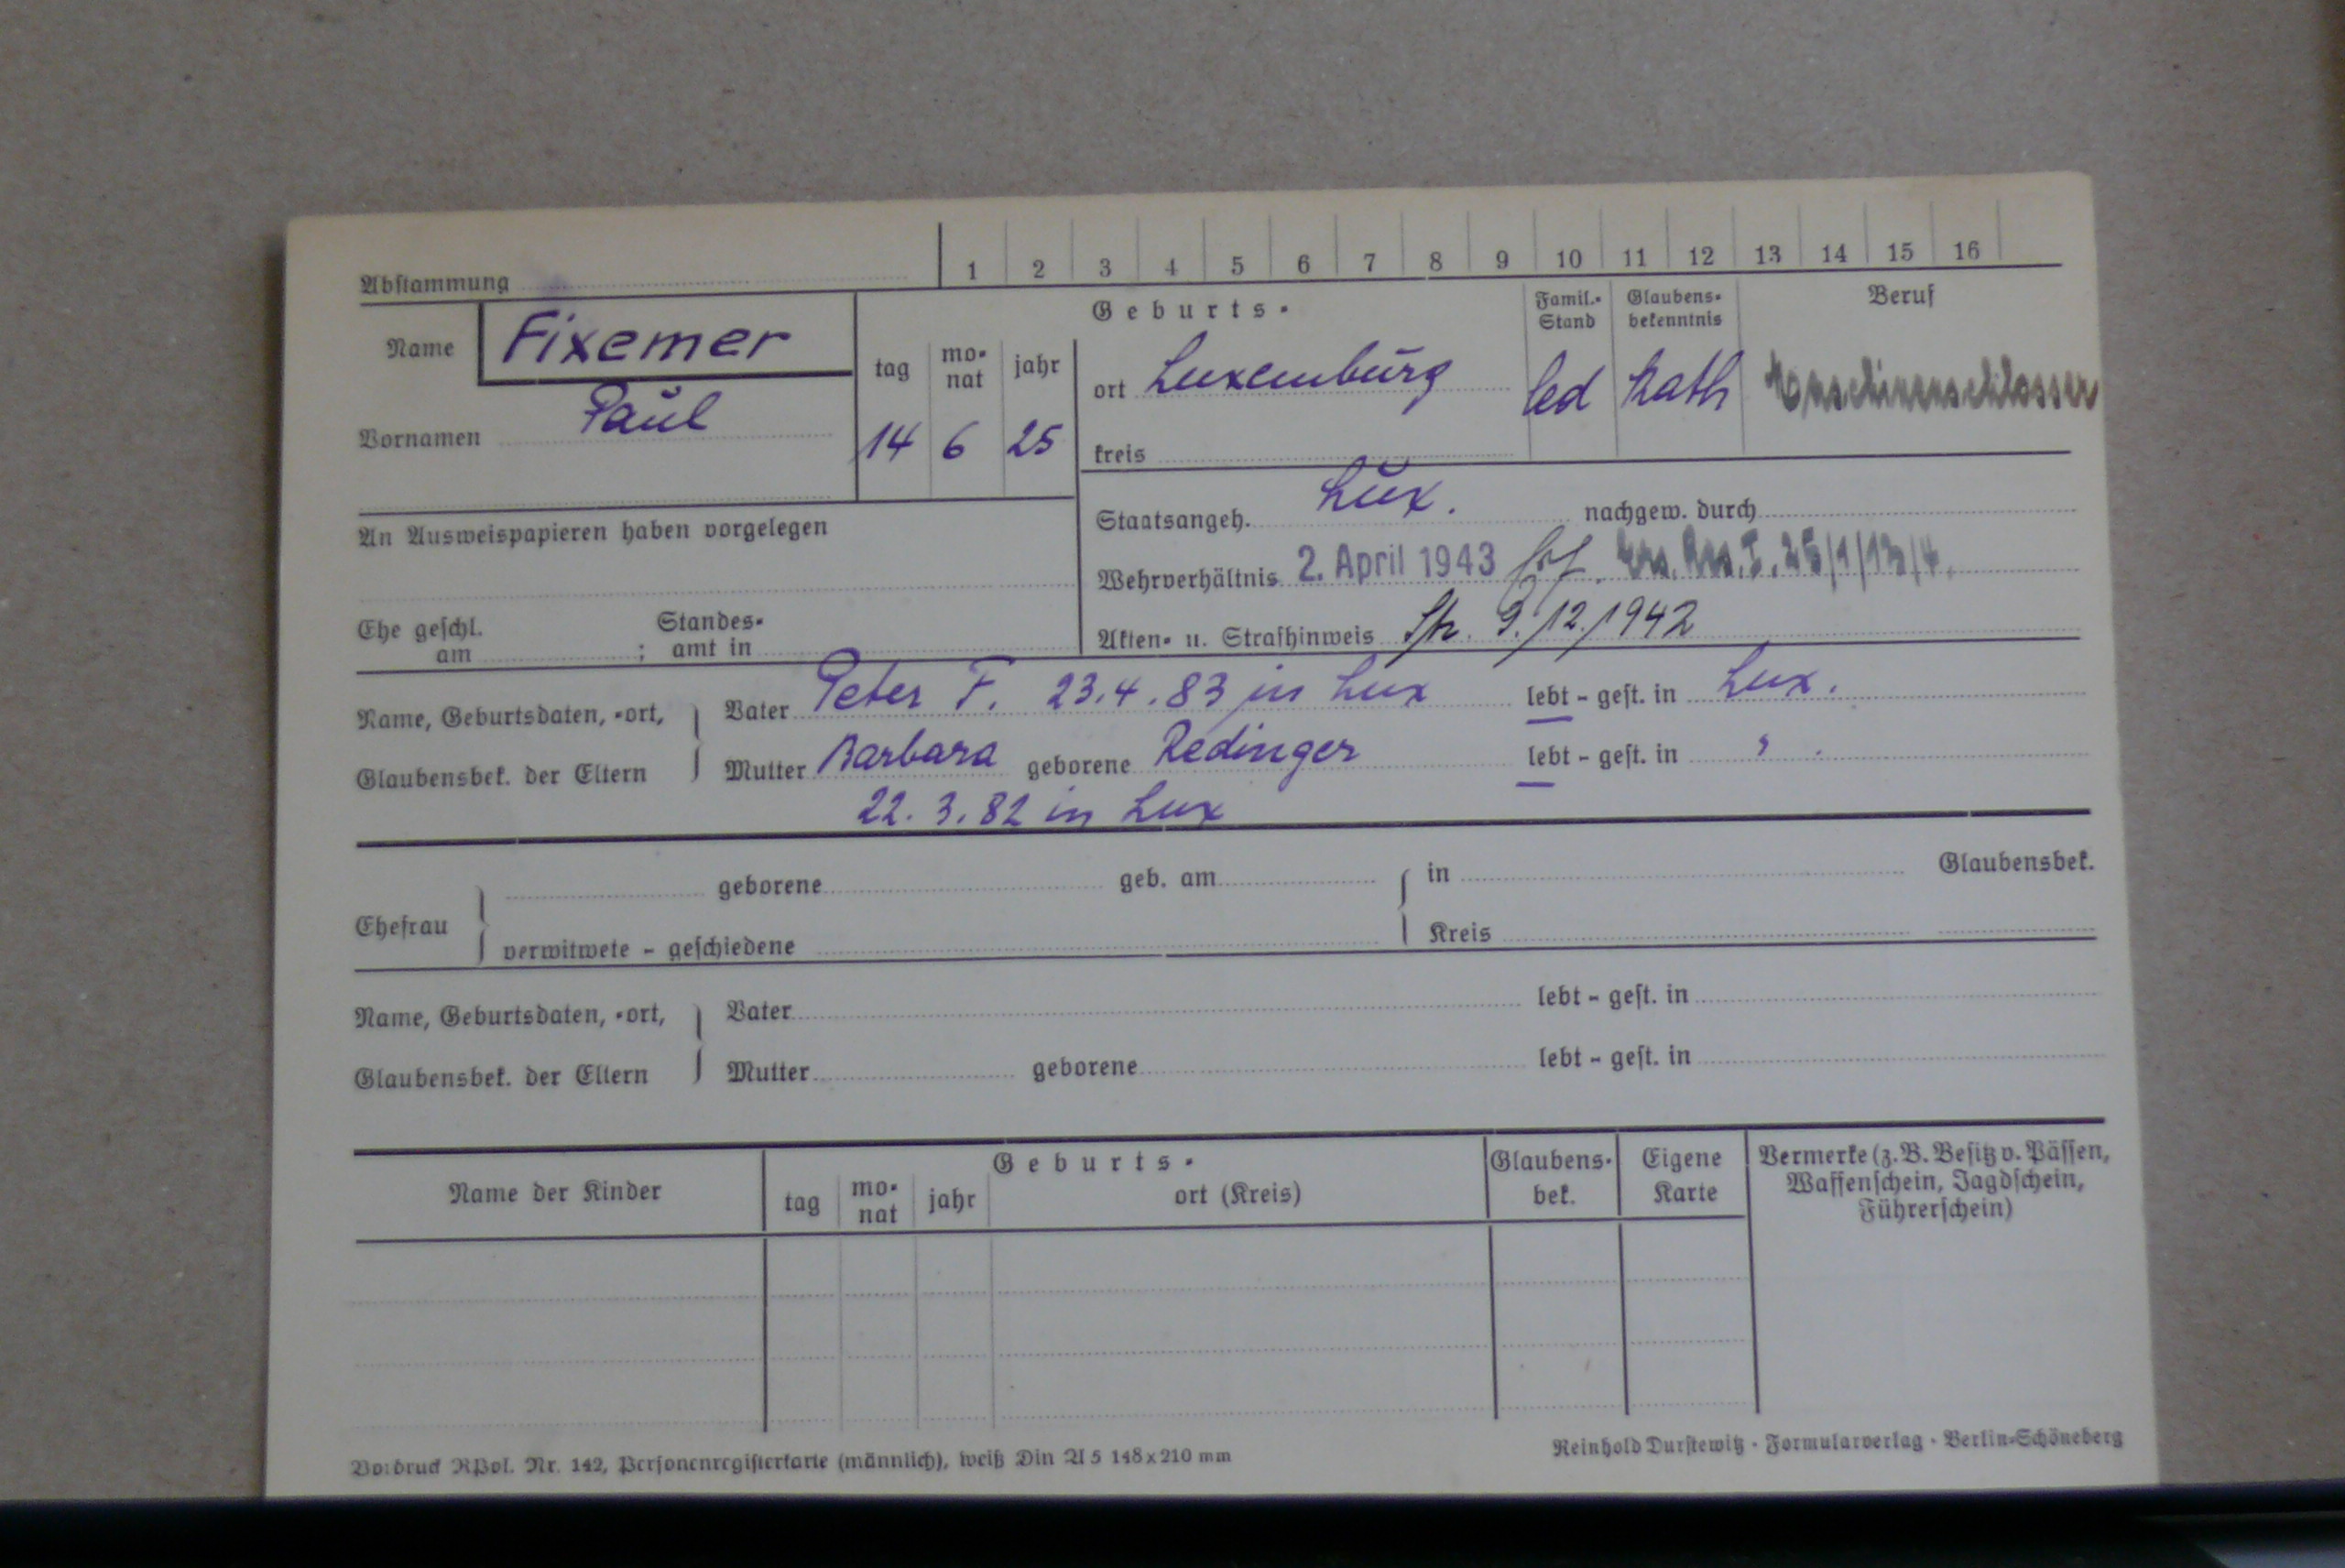 Abstammung 1 2 3 4 5 6 7 8 9 10 11 12 13 14 15 16
Name Fixemer
Vornamen Paul
Geburts-
tag monat jahr
14 6 25
ort Luxemburg
kreis
Famil.-Stand
led
Glaubensbekenntnis
kath
Beruf
Maschinenschlosser
An Ausweispapieren haben vorgelegen
Staatsangeh. Lux. nachgew. durch
Wehrverhältnis 2. April 1943
Ehe geschl. am ; Standesamt in
Akten- u. Strafhinweis 9./12./1942
Name, Geburtsdaten, -ort,
Glaubensbek. der Eltern
Vater Peter F. 23.4.83 in Lux lebt - gest. in Lux.
Mutter Barbara geborene Redinger lebt - gest. in "
22.3.82 in Lux
Ehefrau
geborene geb. am in Glaubensbek.
verwitwete - geschiedene Kreis
Name, Geburtsdaten, -ort,
Glaubensbek. der Eltern
Vater lebt - gest. in
Mutter geborene lebt - gest. in
Name der Kinder
Geburts-
tag monat jahr ort (Kreis)
Glaubens-
bek.
Eigene
Karte
Vermerke (z.B. Besitz v. Pässen,
Waffenschein, Jagdschein,
Führerschein)
Vordruck RPol. Nr. 142, Personenregisterkarte (männlich), weiß Din A 5 148x210 mm
Reinhold Durstewitz · Formularverlag · Berlin-Schöneberg